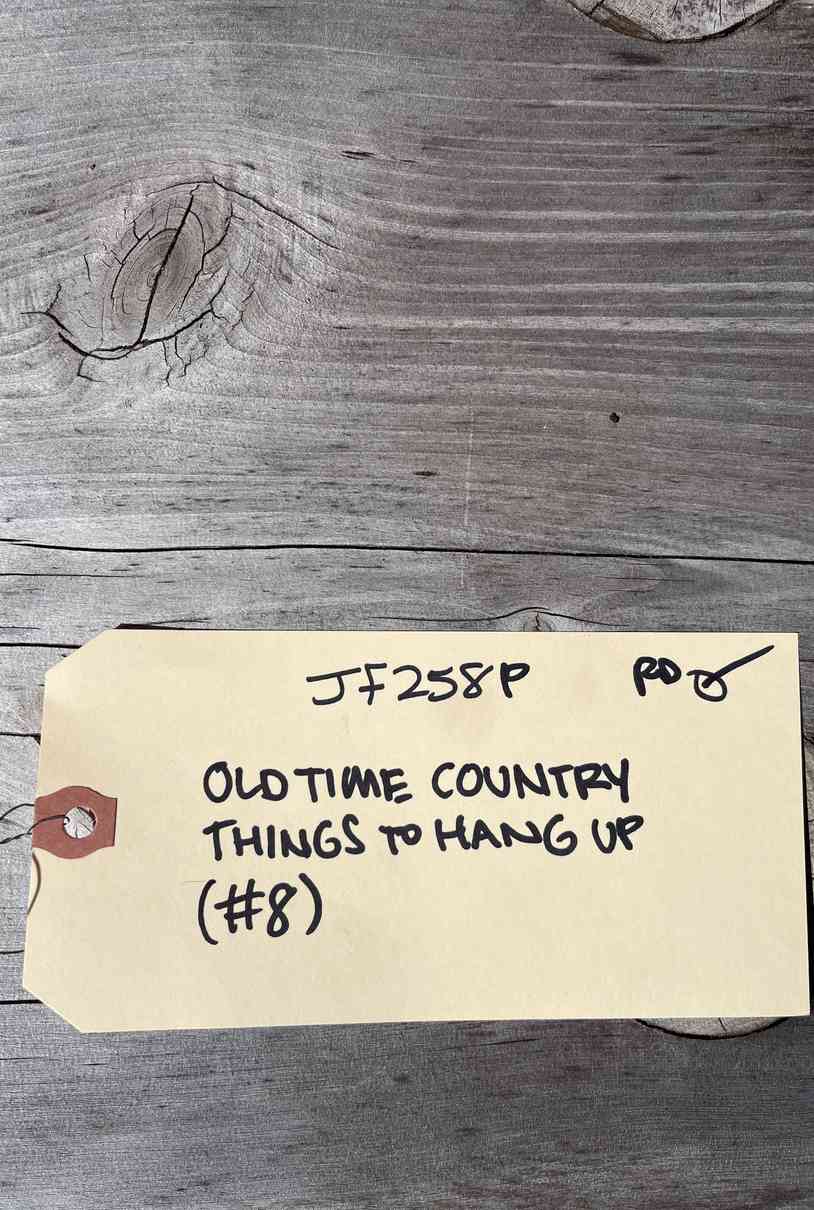 JF258P RD
OLD TIME COUNTRY
THINGS TO HANG UP
(#8)